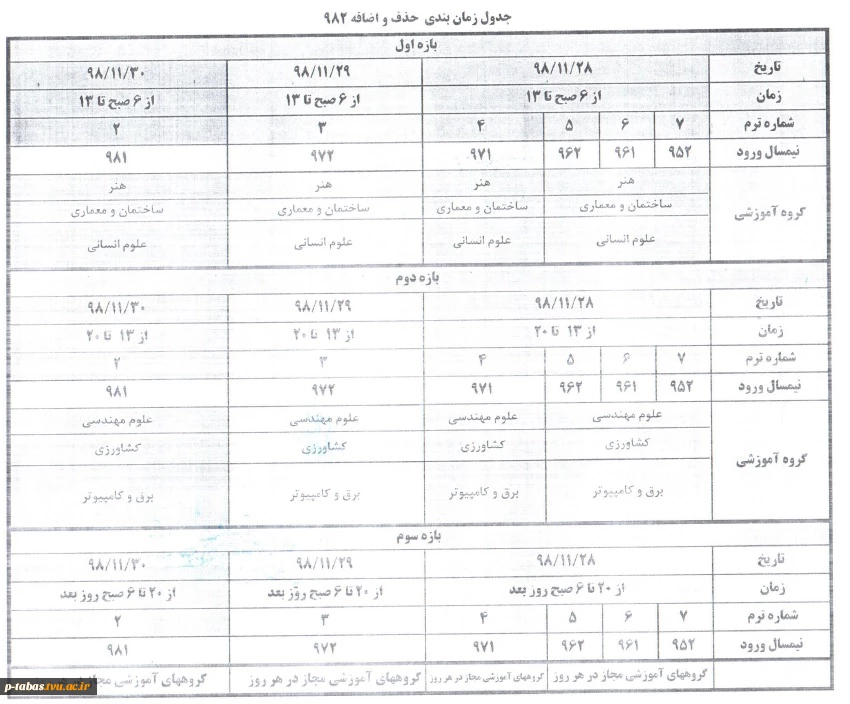 جدول زمان بندی حذف و اضافه ۹۸۲
بازه اول
تاریخ ۹۸/۱۱/۲۸ ۹۸/۱۱/۲۹ ۹۸/۱۱/۳۰
زمان از ۶ صبح تا ۱۳ از ۶ صبح تا ۱۳ از ۶ صبح تا ۱۳
شماره ترم ۷ ۶ ۵ ۴ ۳ ۲
نیمسال ورود ۹۵۲ ۹۶۱ ۹۶۲ ۹۷۱ ۹۷۲ ۹۸۱
گروه آموزشی
هنر هنر هنر هنر
ساختمان و معماری ساختمان و معماری ساختمان و معماری ساختمان و معماری
علوم انسانی علوم انسانی علوم انسانی علوم انسانی
بازه دوم
تاریخ ۹۸/۱۱/۲۸ ۹۸/۱۱/۲۹ ۹۸/۱۱/۳۰
زمان از ۱۳ تا ۲۰ از ۱۳ تا ۲۰ از ۱۳ تا ۲۰
شماره ترم ۷ ۶ ۵ ۴ ۳ ۲
نیمسال ورود ۹۵۲ ۹۶۱ ۹۶۲ ۹۷۱ ۹۷۲ ۹۸۱
گروه آموزشی
علوم مهندسی علوم مهندسی علوم مهندسی علوم مهندسی
کشاورزی کشاورزی کشاورزی کشاورزی
برق و کامپیوتر برق و کامپیوتر برق و کامپیوتر برق و کامپیوتر
بازه سوم
تاریخ ۹۸/۱۱/۲۸ ۹۸/۱۱/۲۹ ۹۸/۱۱/۳۰
زمان از ۲۰ تا ۶ صبح روز بعد از ۲۰ تا ۶ صبح روز بعد از ۲۰ تا ۶ صبح روز بعد
شماره ترم ۷ ۶ ۵ ۴ ۳ ۲
نیمسال ورود ۹۵۲ ۹۶۱ ۹۶۲ ۹۷۱ ۹۷۲ ۹۸۱
گروههای آموزشی مجاز در هر روز گروههای آموزشی مجاز در هر روز گروههای آموزشی مجاز در هر روز گروههای آموزشی مجاز در
p-tabas.tvu.ac.ir